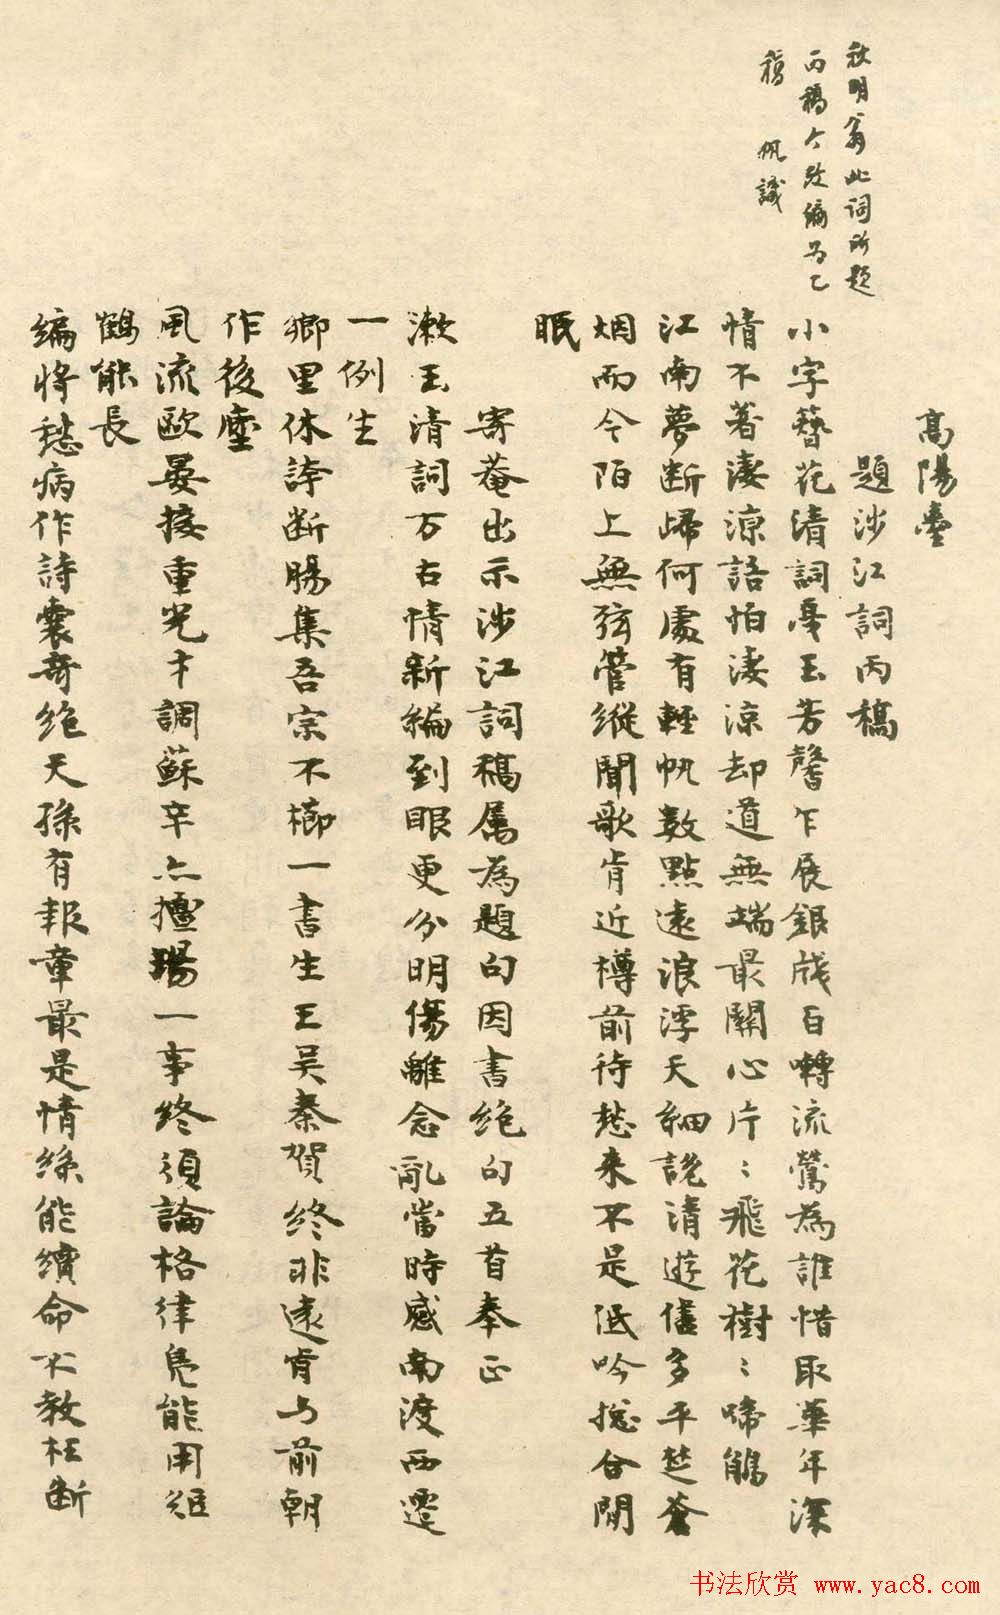 秋明翁此詞所題
丙稿今改編为乙
稿　帆識
高陽臺
題涉江詞丙稿
小字簪花清詞戛玉芳馨乍展銀牋百囀流鶯為誰惜取華年深
情不著淒涼語怕淒涼却道無端最關心片〻飛花樹〻啼鵑
江南夢断歸何處有輕帆數點遠浪浮天細說清遊儘多平楚蒼
烟而今陌上無弦管縱聞歌肯近樽前待愁来不是低吟揔合閒
眠
寄菴出示涉江詞稿属為題句因書絶句五首奉正
漱玉清詞万古情新編到眼更分明傷離念亂當時感南渡西遷
一例生
鄉里休誇断腸集吾宗不櫛一書生王吴秦賀終非遠肯与前朝
作後塵
風流歐晏接重光才調蘇辛亦擅場一事終須論格律凫能用短
鶴能長
編將愁病作詩囊奇絶天孫有報章最是情絲能續命不教枉断
书法欣赏 www.yac8.com